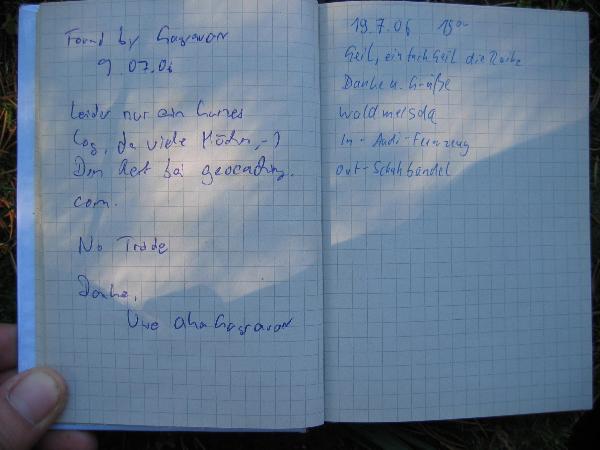 Found by Gagravar
9.07.06
Leider nur ein kurzes
Log, da viele Mücken, -)
Den Rest bei geocaching.
com.
No Trade
Danke,
Uwe aka Gagravar
19.7.06 18⁰⁰
Geil, einfach Geil die Reihe
Danke u. Grüße
Waldmeisda
In - Audi-Feuerzeug
out - Schuhbändel